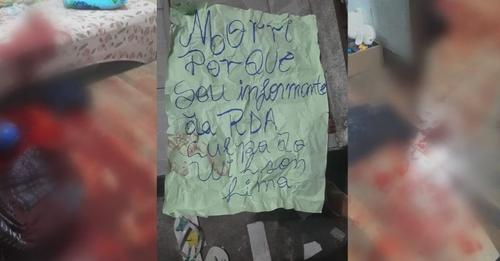 Morri
PorQUE
sou informante
da RDA
Culpa do
Wilson
Lima